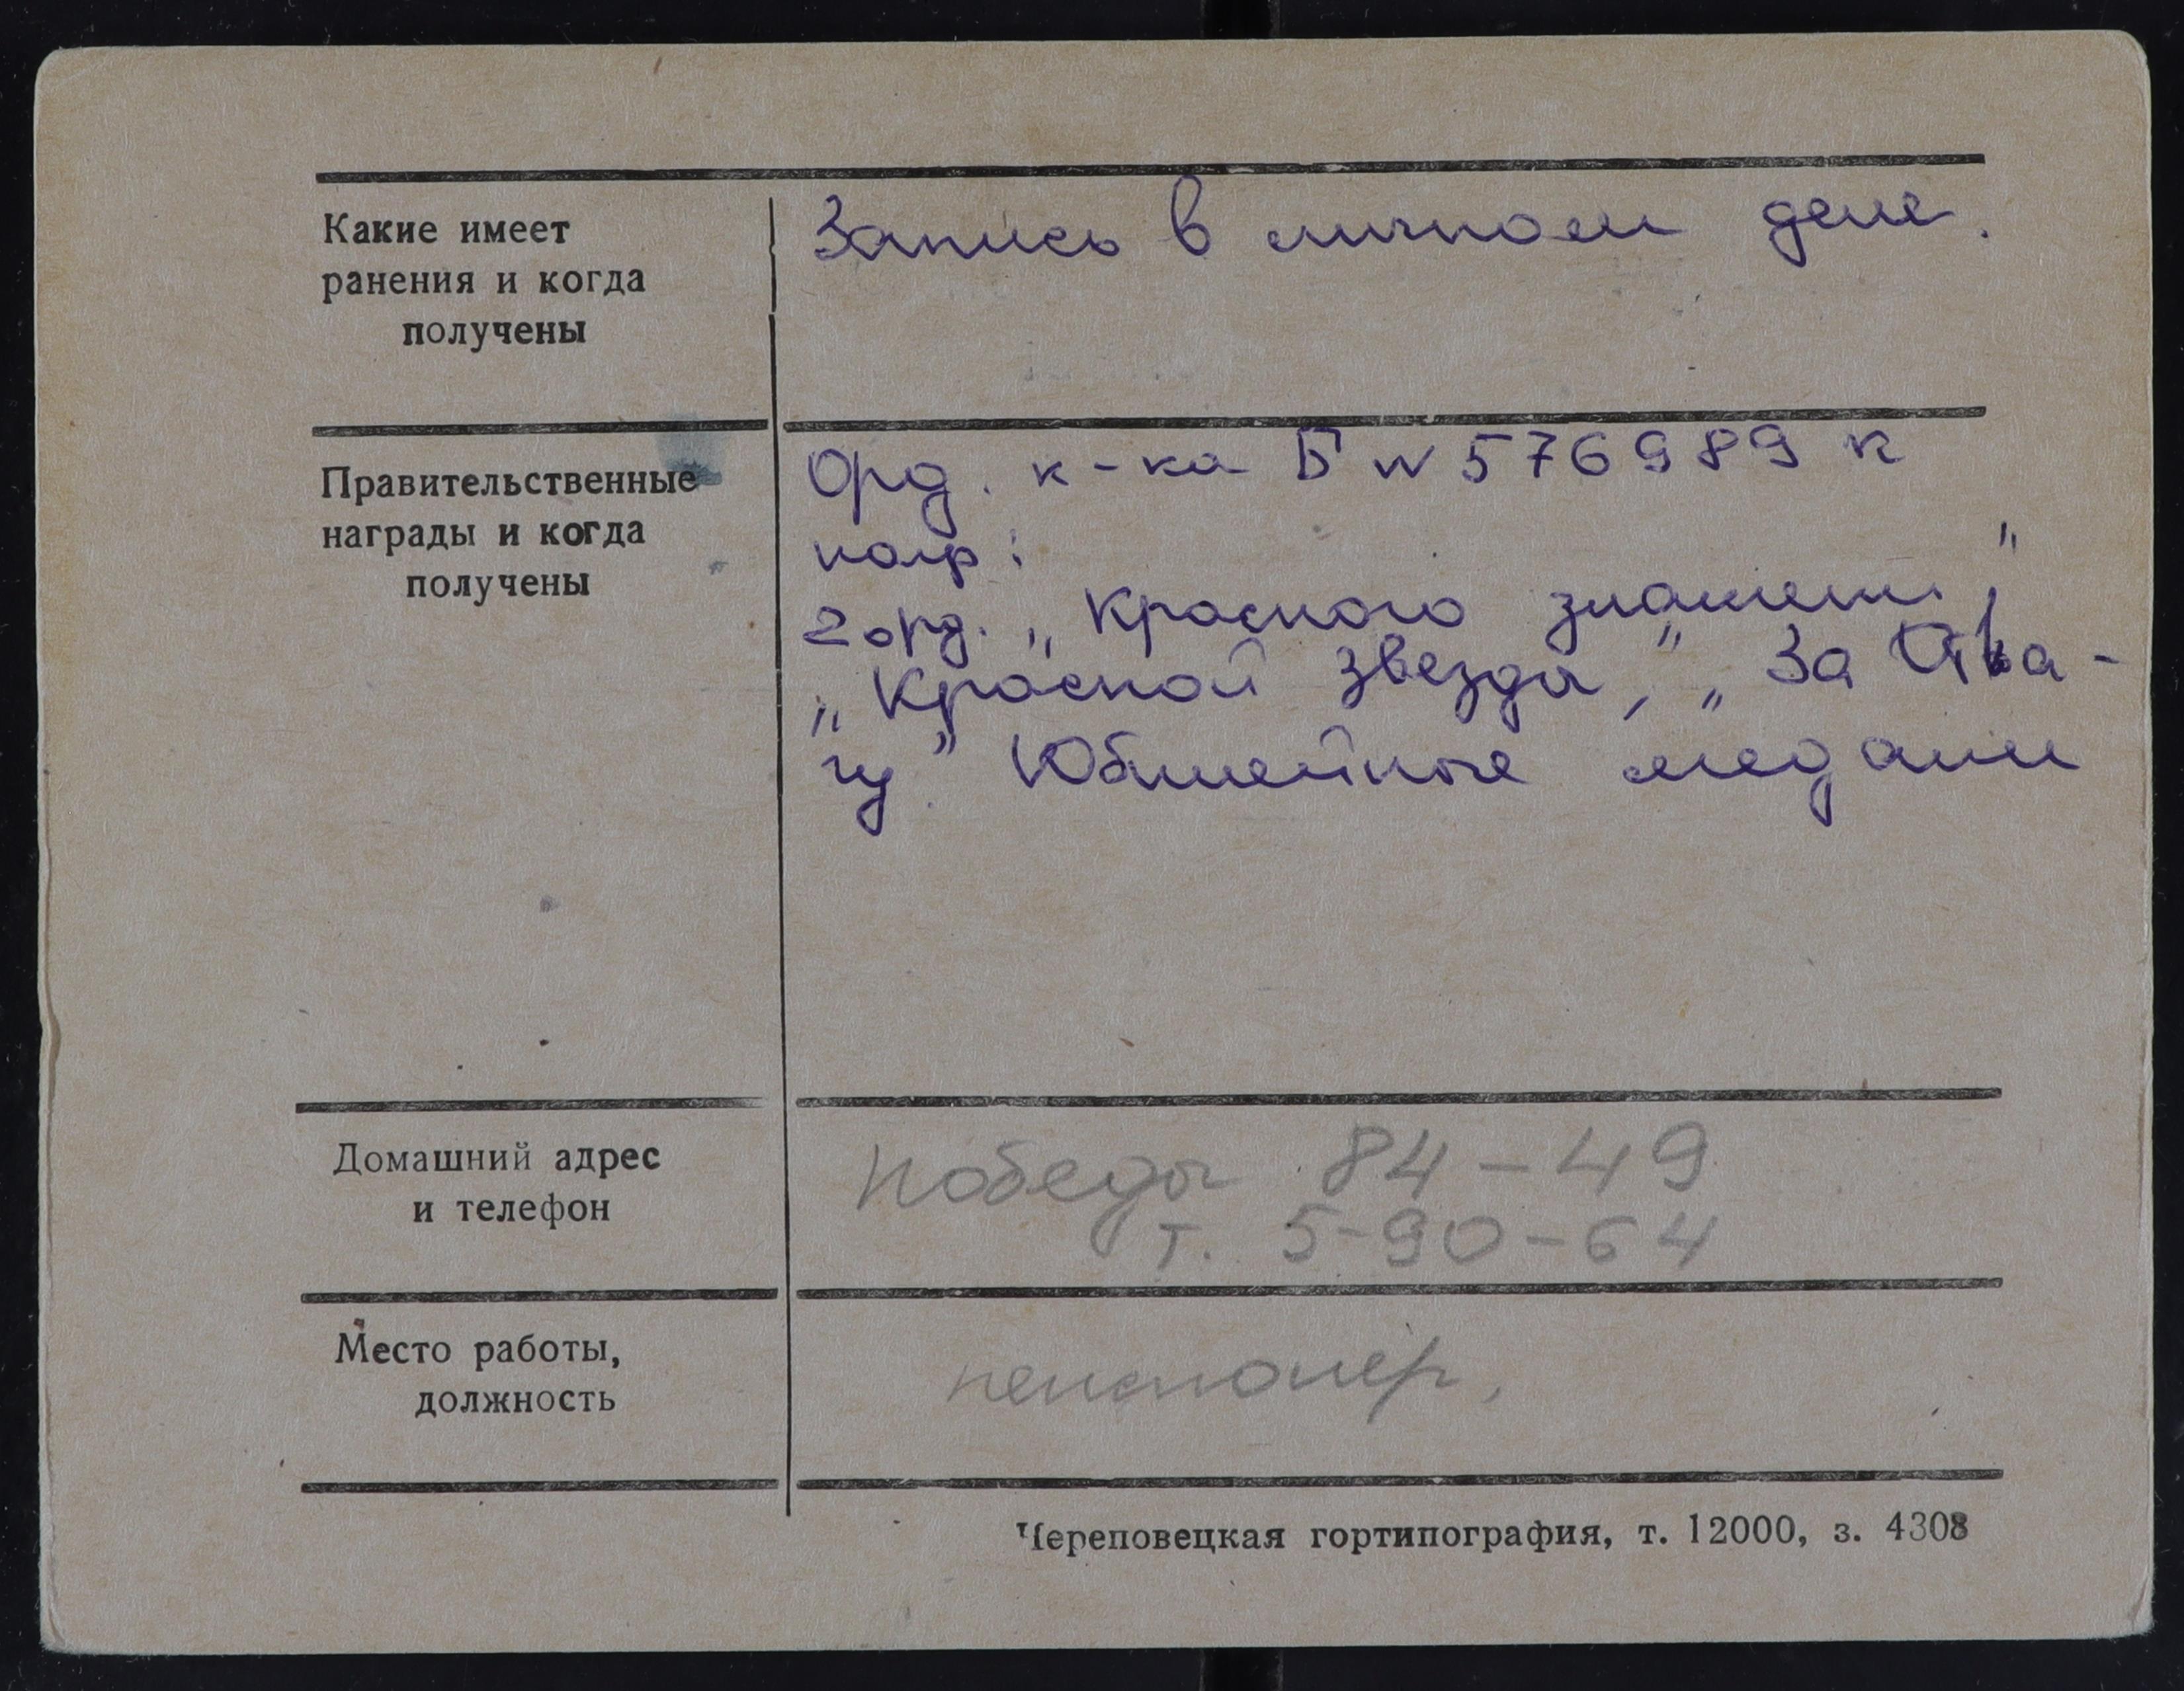 Какие имеет
ранения и когда
получены
Запись в личном деле.
Правительственные
награды и когда
получены
Орд. к-ка Б № 576989 к
2 орд. „Красного знамени",
„Красной звезды", „За Отва-
гу" Юбилейные медали
Домашний адрес
и телефон
Победы 84-49
т. 5-90-64
Место работы,
должность
пенсионер.
Череповецкая гортипография, т. 12000, з. 4308